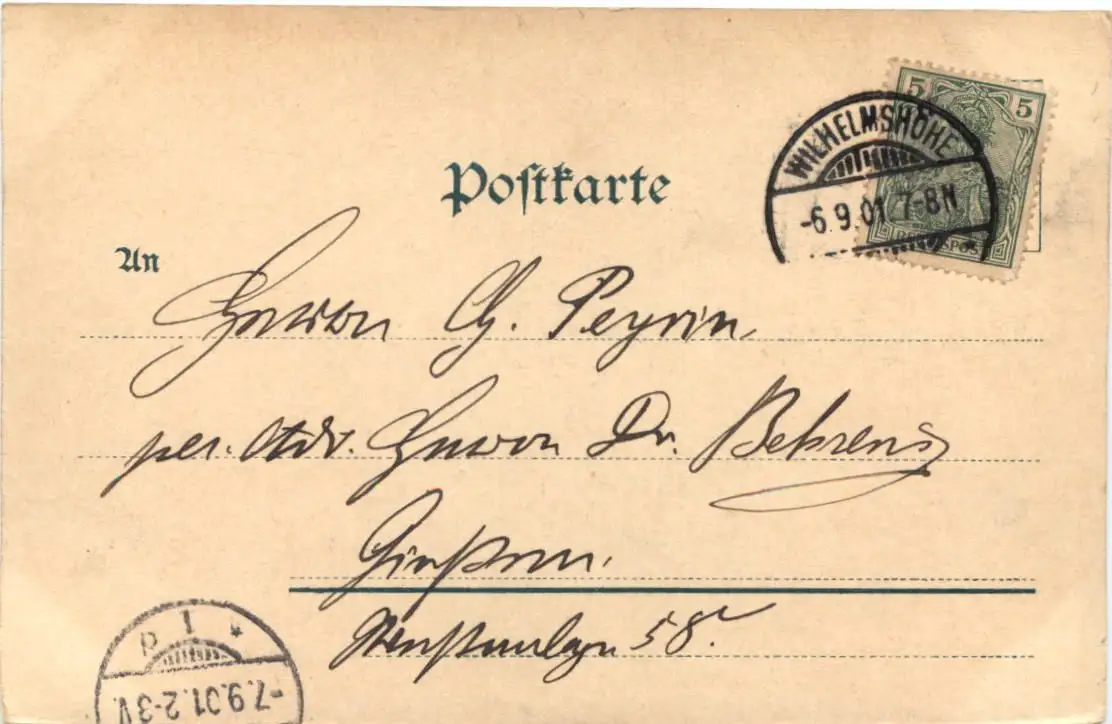 Postkarte
5 5
WILHELMSHÖHE
-6.9.01 7-8N
REICHSPOST
An
Herrn Ch. Peyrin
per. Adr. Herrn Dr. Behrens
Giessen.
Westanlage 58.
1
-7.9.01.2-3V.